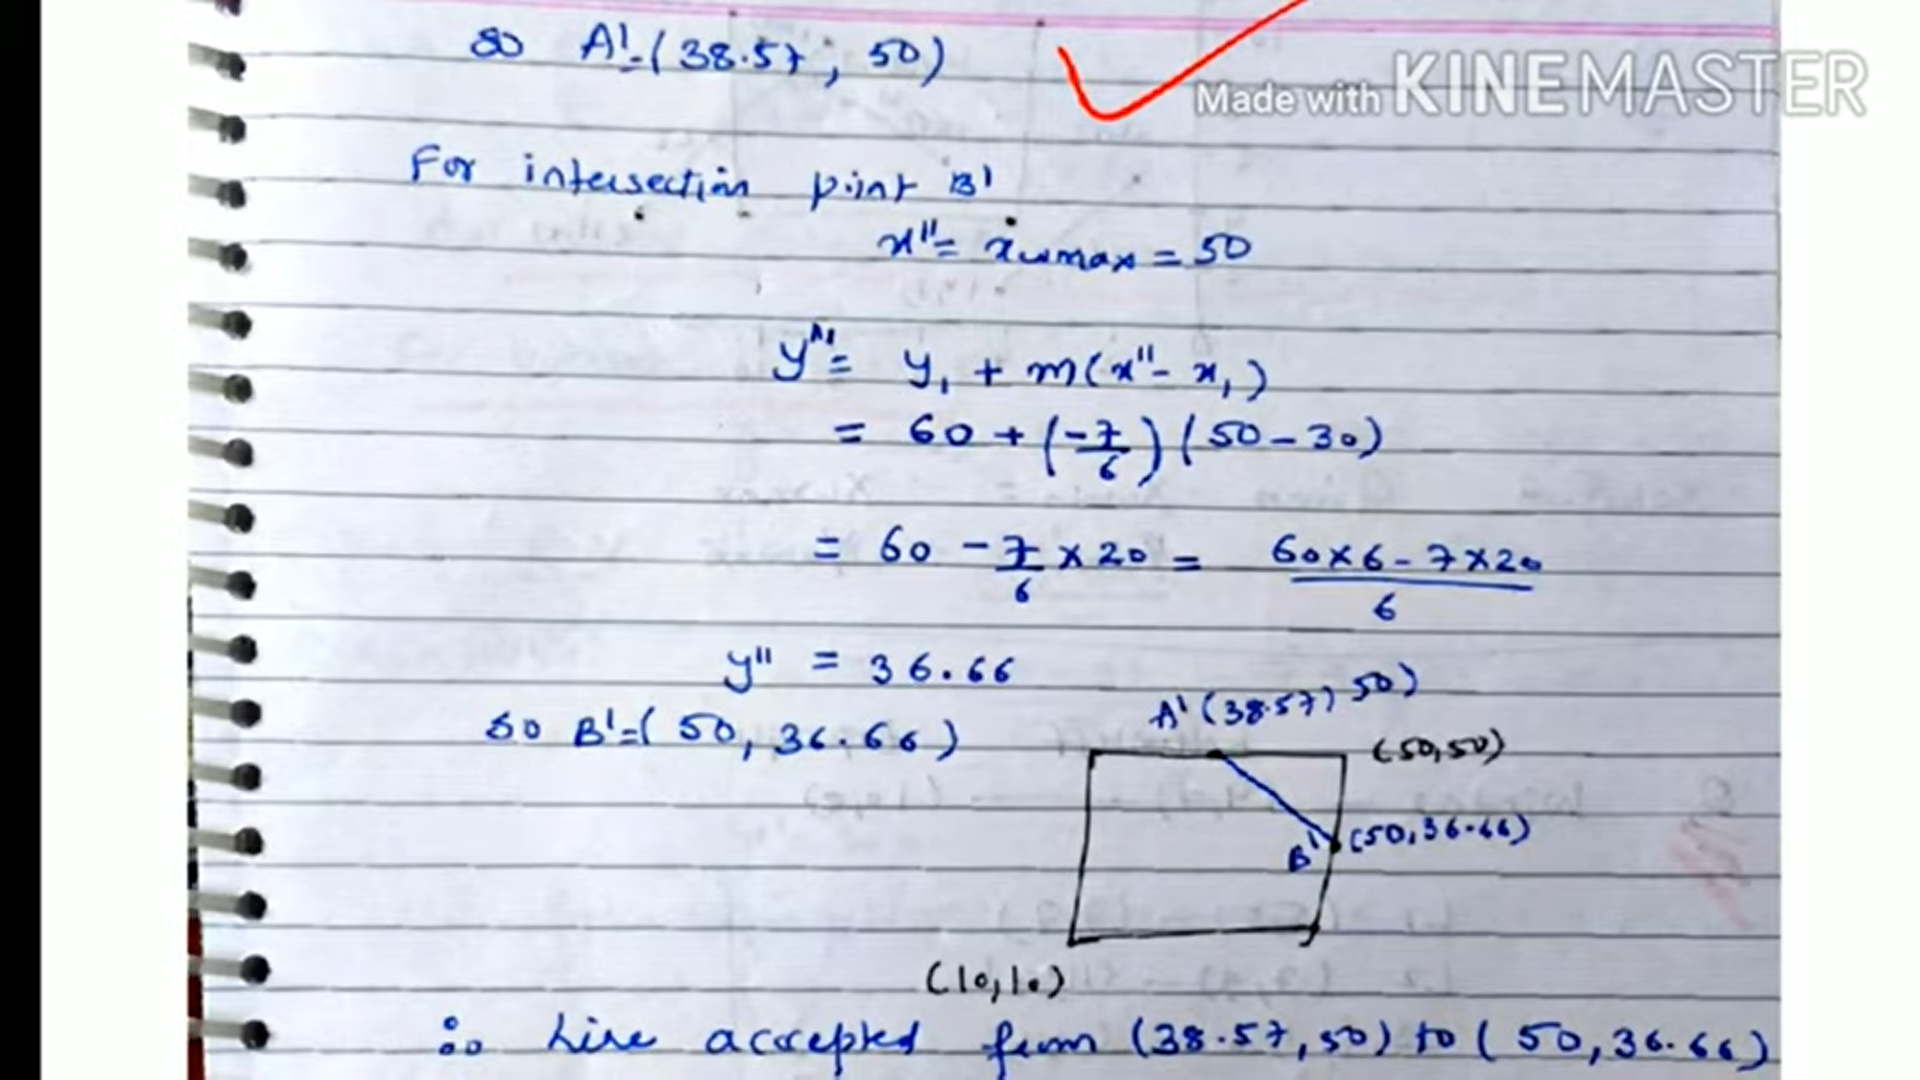 so A'=(38.57, 50)
Made with KINEMASTER
For intersection point B'
x"= xwmax = 50
y"= y₁ + m(x"- x₁)
= 60 + (-7/6) (50-30)
= 60 - 7/6 × 20 = 60×6-7×20/6
y" = 36.66
so B'=( 50, 36.66)
A' (38.57, 50)
(50,50)
B' (50,36.66)
(10,10)
∴ Line accepted from (38.57,50) to ( 50,36.66)